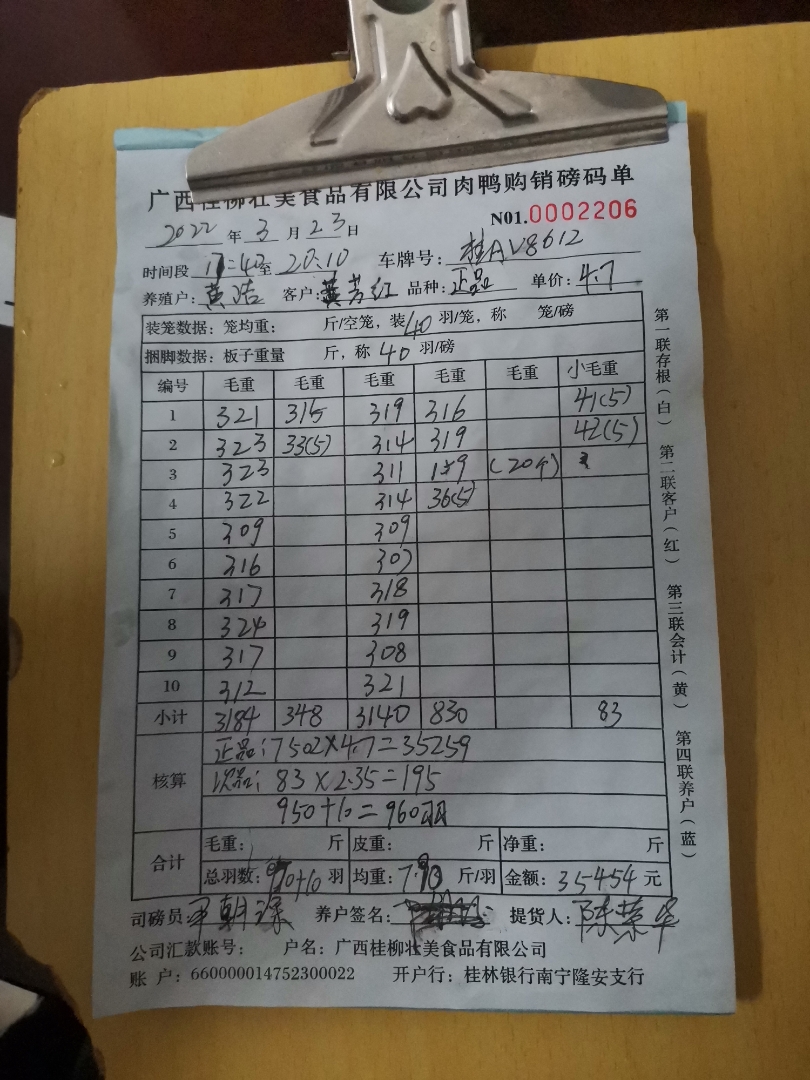 广西桂柳壮美食品有限公司肉鸭购销磅码单
N01.0002206
2022 年 3 月 23 日
时间段 17:40至 20:10 车牌号: 桂AV8612
养殖户: 黄 客户: 黄芳红 品种: 正品 单价: 4.7
装笼数据: 笼均重: 斤/空笼, 装 40 羽/笼, 称 笼/磅
捆脚数据: 板子重量 斤, 称 40 羽/磅
编号 毛重 毛重 毛重 毛重 毛重 小毛重
1 321 315 319 316 41(5)
2 323 33(5) 314 319 42(5)
3 323 311 159 (20个)
4 322 314 36(5)
5 309 309
6 316 307
7 317 318
8 324 319
9 317 308
10 312 321
小计 3184 348 3140 830 83
核算
正品: 7502×4.7=35259
次品: 83×2.35=195
950+10=960羽
合计
毛重: 斤 皮重: 斤 净重: 斤
总羽数: +10 羽 均重: 7.90 斤/羽 金额: 35454 元
司磅员: 养户签名: 提货人: 陈荣华
公司汇款账号: 户名: 广西桂柳壮美食品有限公司
账 户: 660000014752300022 开户行: 桂林银行南宁隆安支行
第一联存根(白) 第二联客户(红) 第三联会计(黄) 第四联养户(蓝)